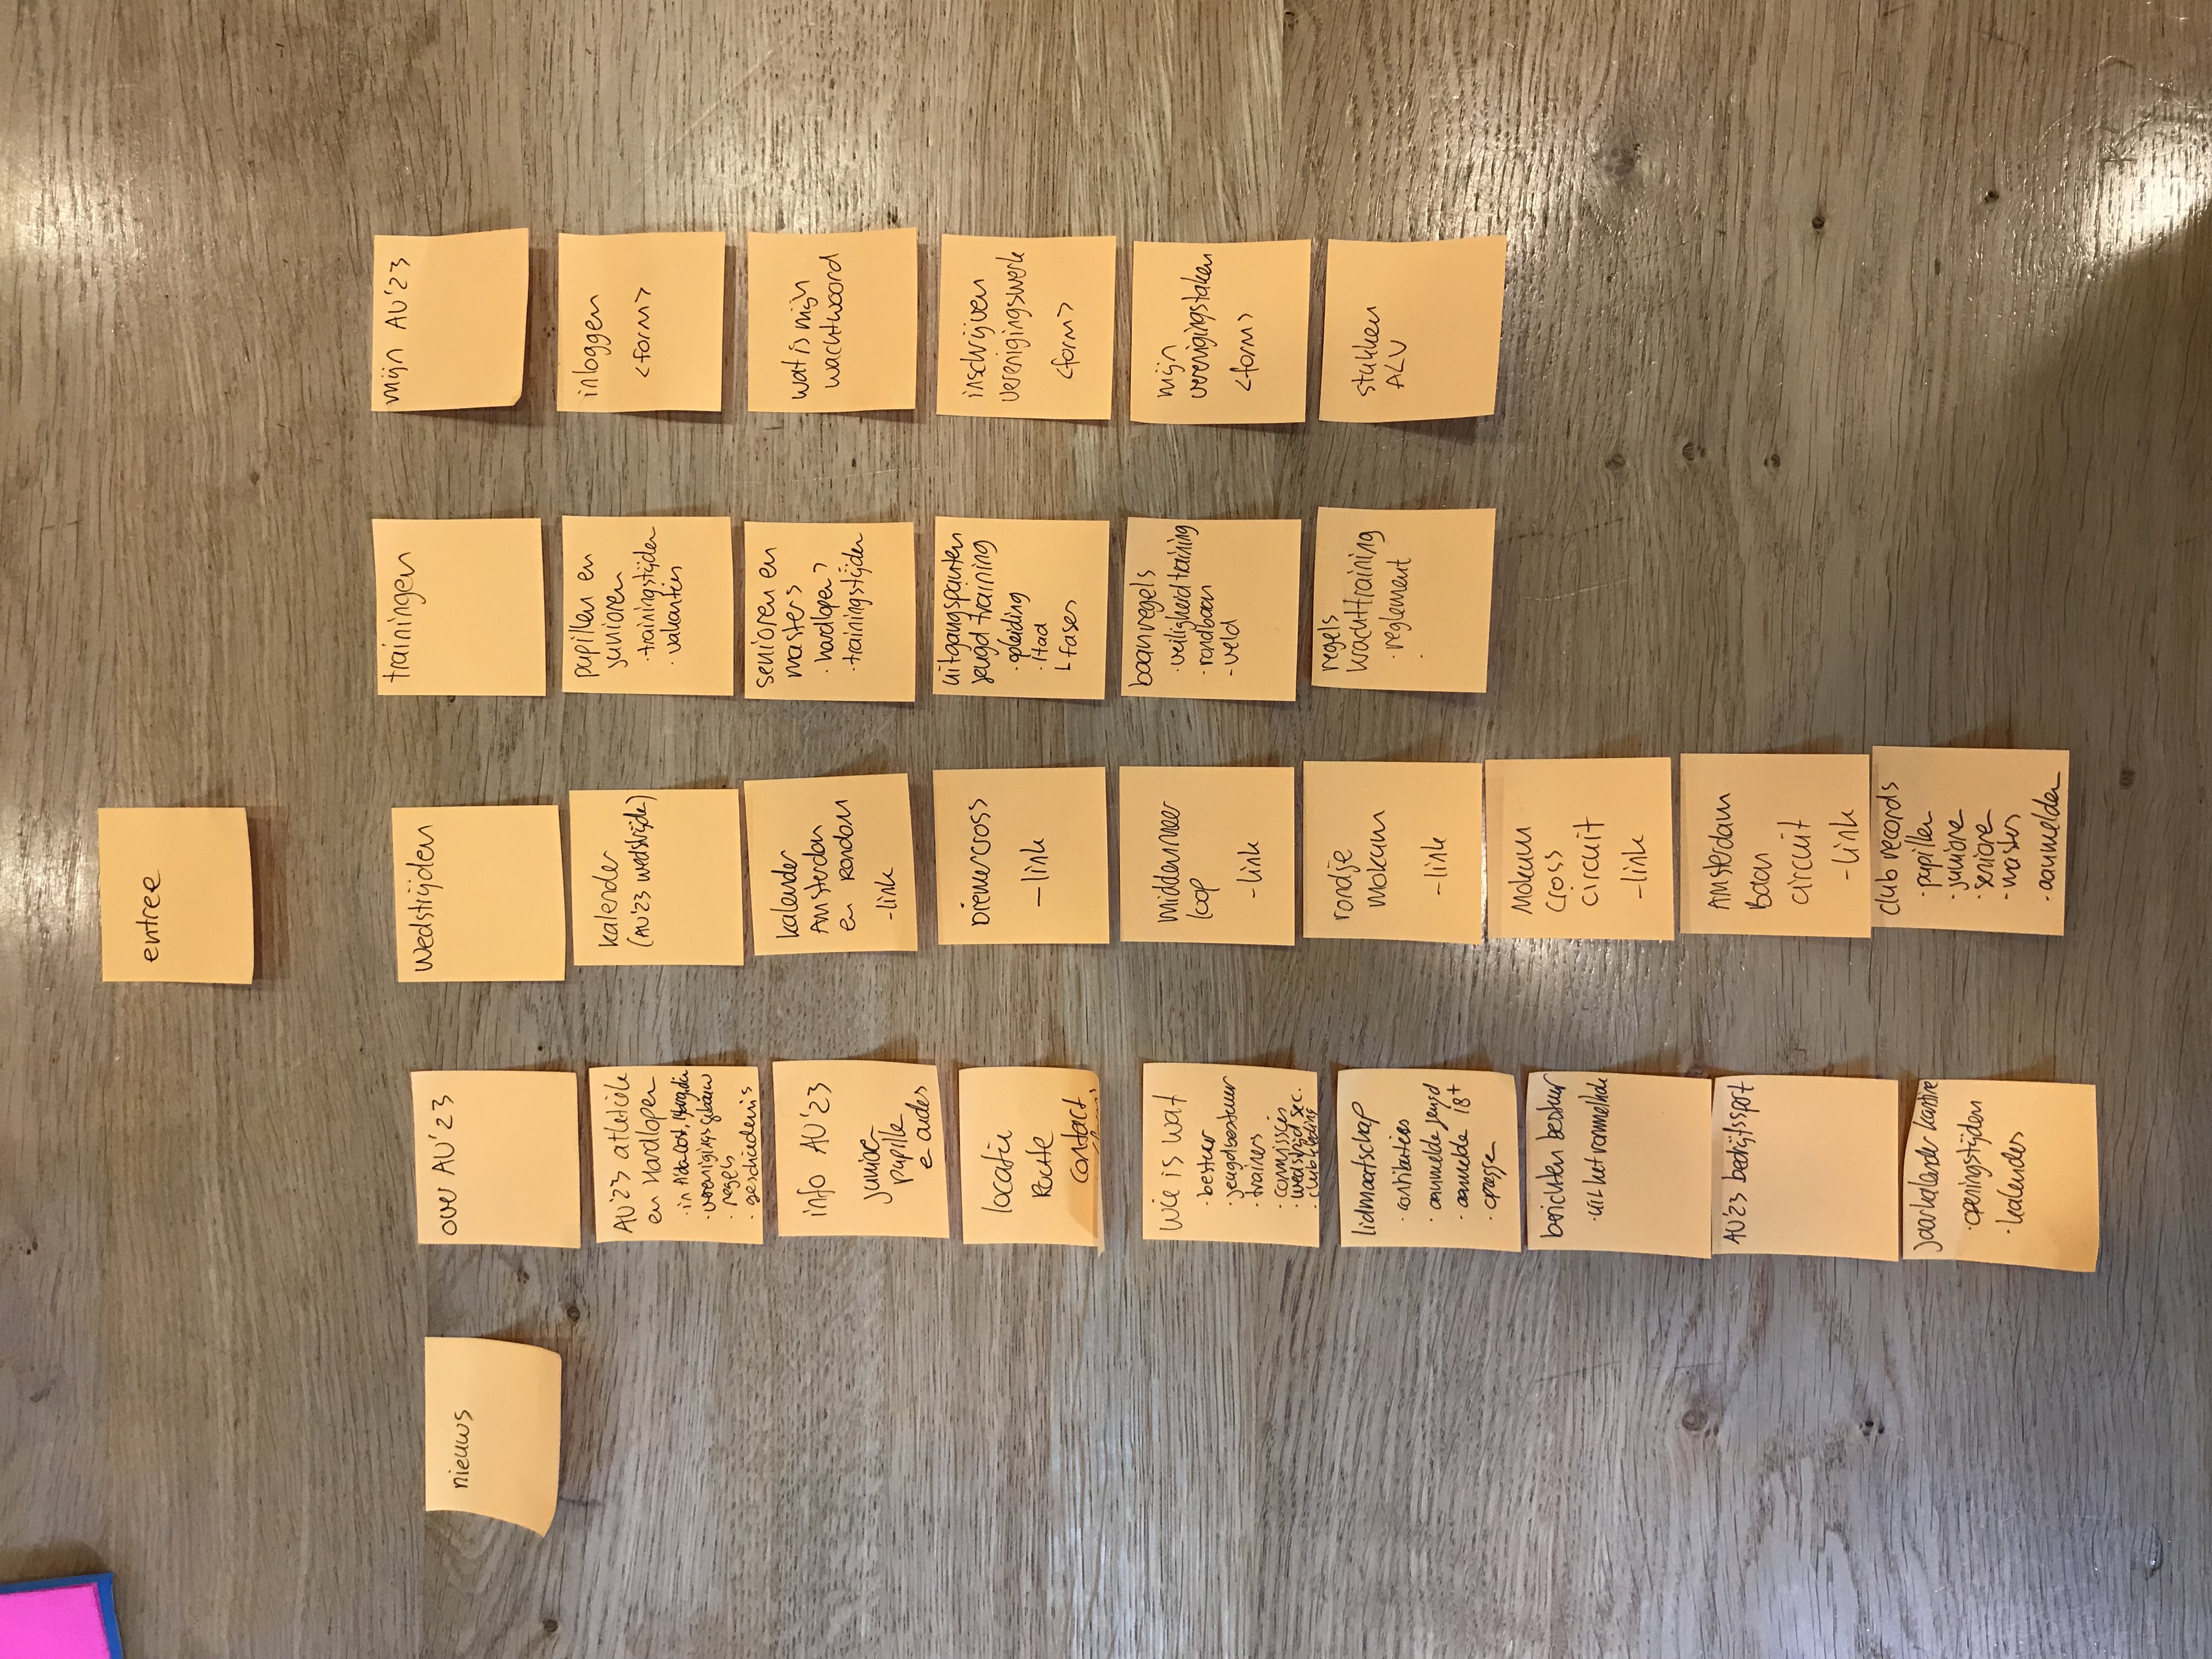 entree
nieuws
over AU'23
AU'23 atletiek
en Hardlopen
· in A'dam Oost,
· verenigingsgebouw
· regels
· geschiedenis
info AU'23
junior
pupille
e ouders
locatie
Route
contact
wie is wat
· bestuur
· jeugdbestuur
· trainers
· commissies
· wedstrijd sec.
· clubkleding
lidmaatschap
· contributies
· aanmelde jeugd
· aanmelde 18+
berichten bestuur
· uit het rommelhok
AU'23 bedrijfssport
jaarkalender kantine
· openingstijden
· kalender
wedstrijden
kalender
(AU'23 wedstrijde)
kalender
Amsterdam
en Rondom
- link
Diemercross
- link
middenmeer
loop
- link
rondje
Mokum
- link
Mokum
cross
circuit
- link
Amsterdam
Baan
circuit
- link
club records
· pupillen
· juniore
· seniore
· masters
· aanmelden
trainingen
pupillen en
junioren
· trainingstijden
· vakanties
senioren en
masters
· hardlopen?
· trainingstijden
uitgangspunten
jeugd training
· opleiding
· ltad
└ fases
baanregels
· veiligheid training
· rondbaan
- veld
regels
krachttraining
· reglement
·
mijn AU'23
inloggen
<form>
wat is mijn
wachtwoord
inschrijven
verenigingswerk
<form>
mijn
verenigingstaken
<form>
stukken
ALV